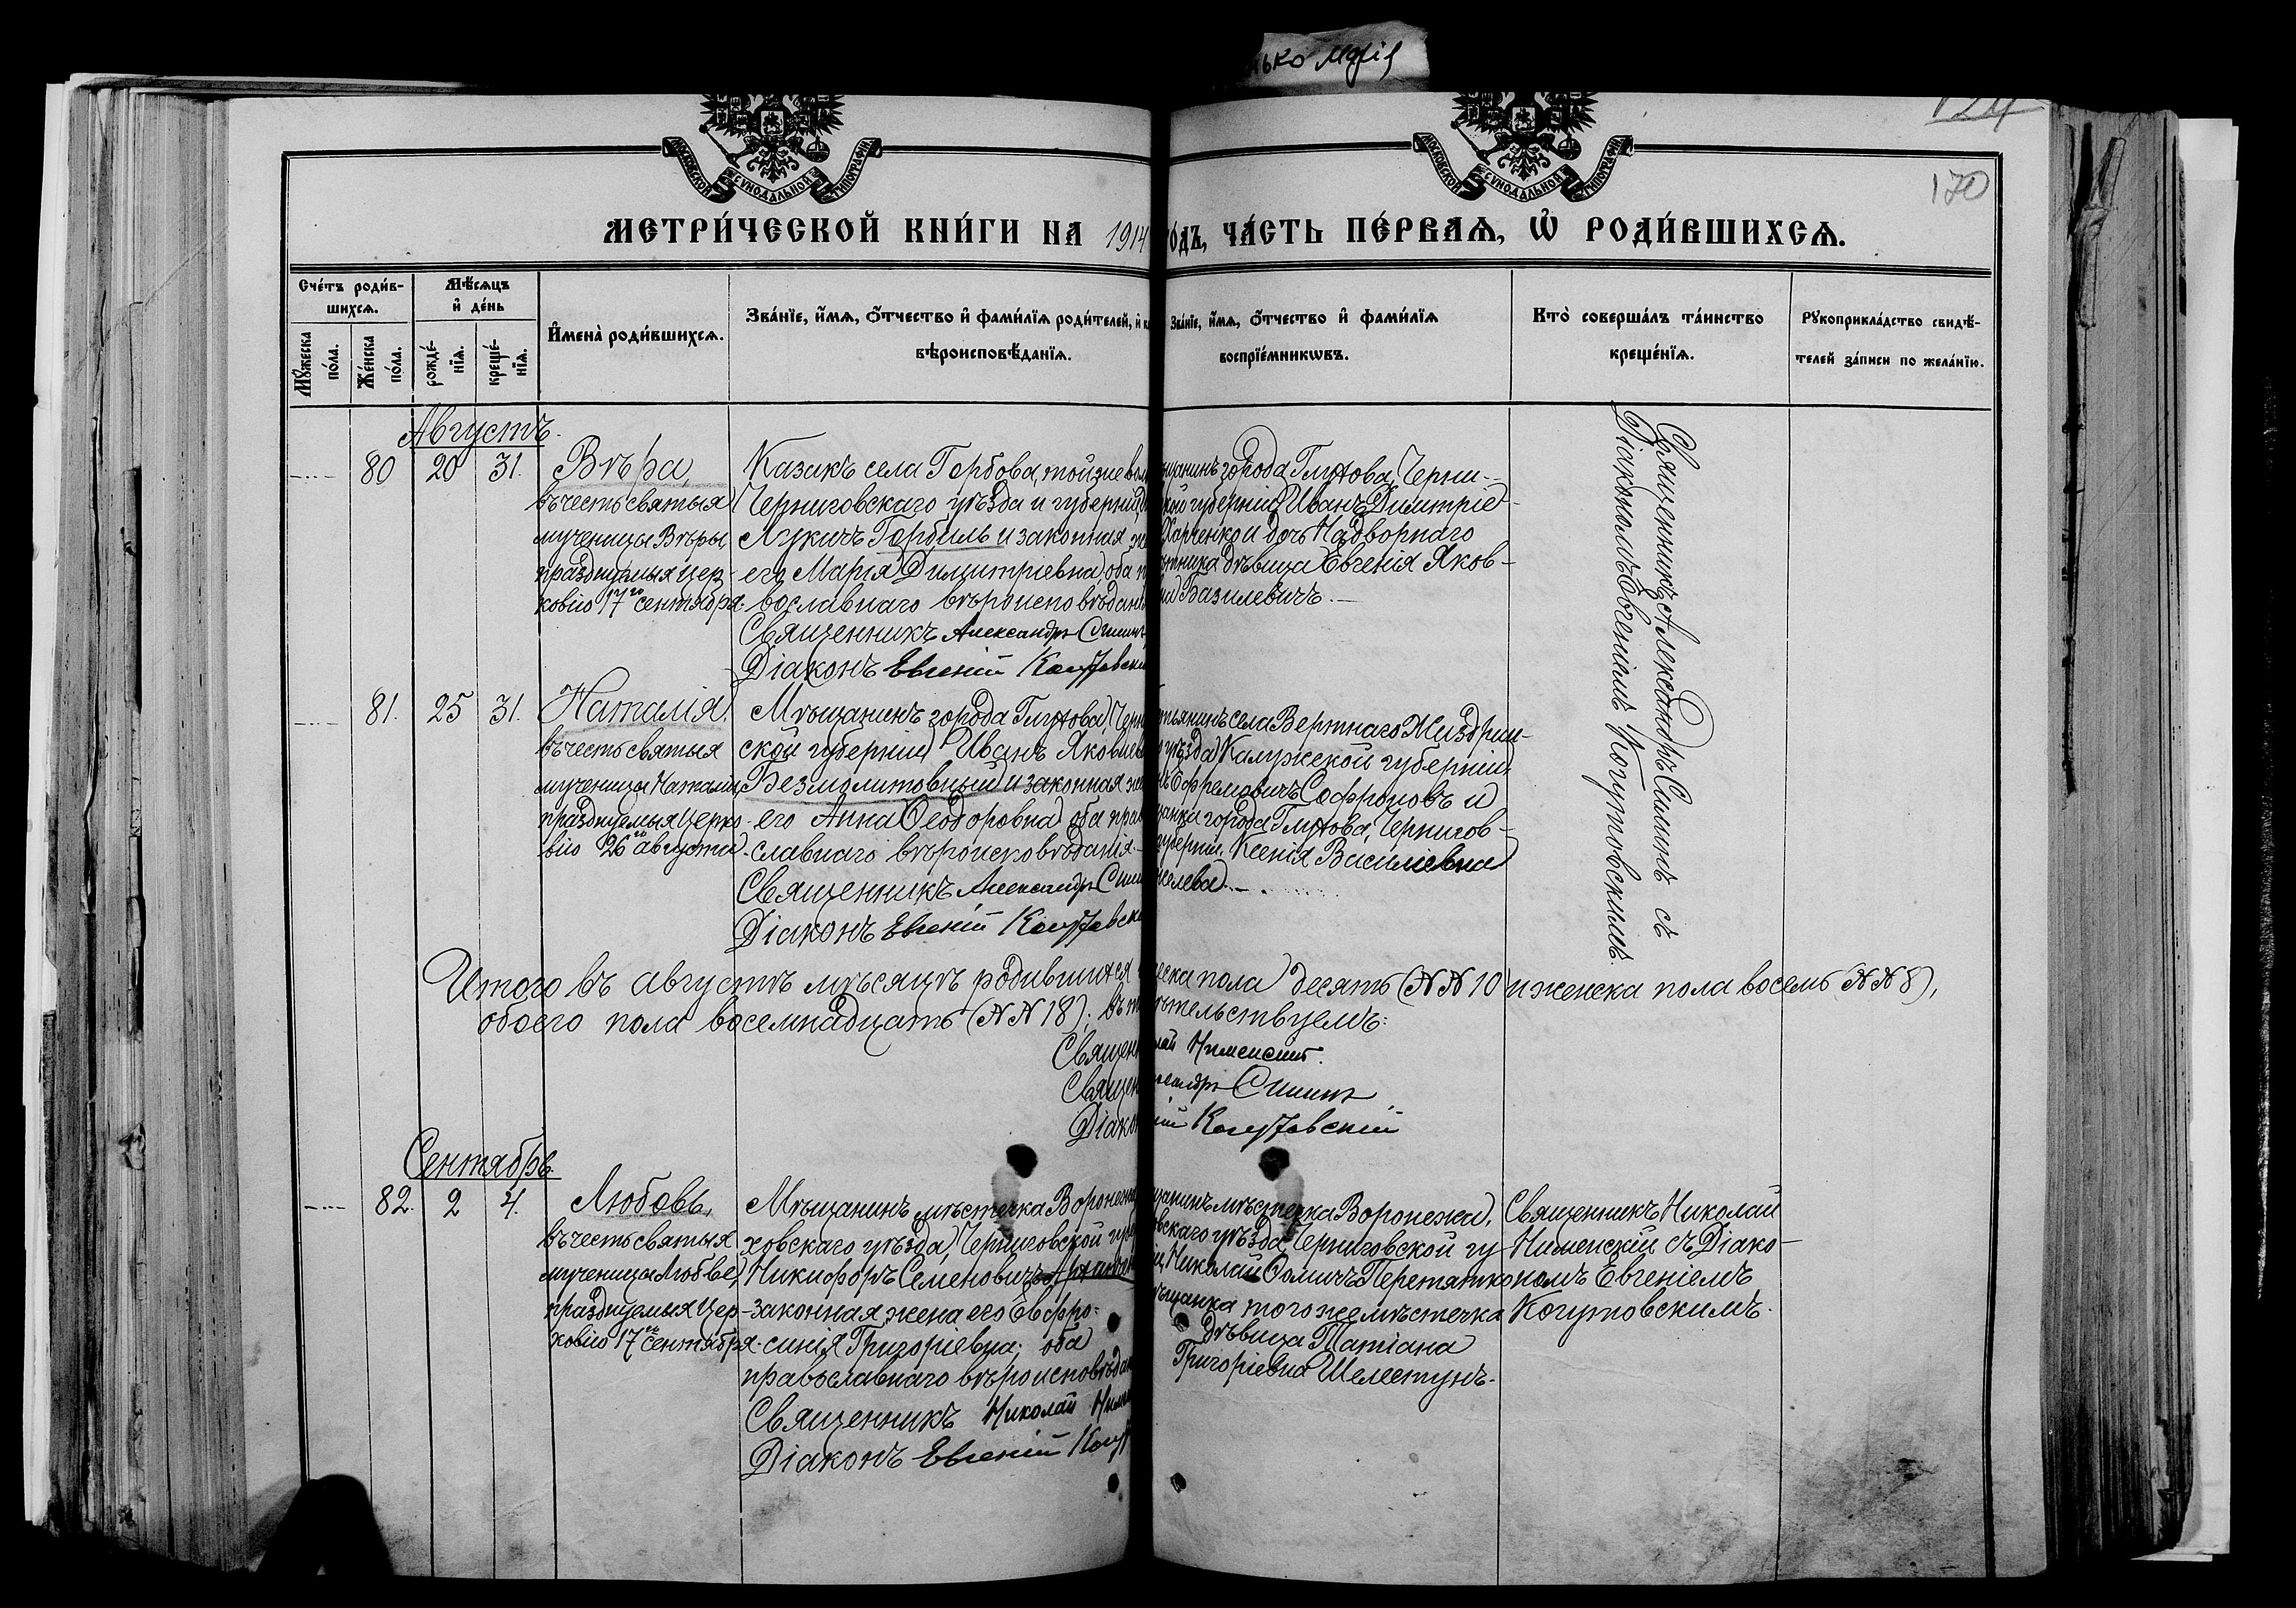 нько Марія
124
170
МОСКОВСКОЙ СѴНОДАЛЬНОЙ ТИПОГРАФІИ
МОСКОВСКОЙ СѴНОДАЛЬНОЙ ТИПОГРАФІИ
МЕТРИ́ЧЕСКОЙ КНИ́ГИ НА 1914
ГО́ДЪ, ЧА́СТЬ ПЕ́РВАѦ, Ѡ҆ РОДИ́ВШИХСѦ.
Сче́тъ роди́в-
шихсѧ.
Мꙋ́жеска по́ла.
Же́нска по́ла.
Мѣ́сѧцъ
и҆ де́нь
рожде́-
нїѧ.
креще́-
нїѧ.
И҆мена̀ роди́вшихсѧ.
Зва́нїе, и҆́мѧ, ѻ҆́тчество и҆ фами́лїѧ роди́телей, и҆ к
вѣроисповѣ́данїѧ.
Зва́нїе, и҆́мѧ, ѻ҆́тчество и҆ фами́лїѧ
воспрїе́мникѡвъ.
Кто̀ соверша́лъ та́инство
креще́нїѧ.
Рꙋкоприкла́дство свидѣ́-
телей за́писи по жела́нїю.
Августъ.
80 20 31. Вѣра,
въ честь святыя
мученицы Вѣры
празднуемыя цер-
ковію 17го сентября.
Казакъ села Горбова, той же вол
Черниговскаго уѣзда и губерніи,
Лукичъ Горбиль и законная же
его Марія Димитріевна, оба п
вославнаго вѣроисповѣдані
Священникъ Александръ Симин
Діаконъ Евгеній Когутовски
щанинъ города Глухова, Черни-
кой губерніи Иванъ Димитріе-
Харченко и дочь Надворнаго
тника дѣвица Евгенія Яков-
на Базилевичъ.—
Священникъ Александръ Симинъ съ
Діакономъ Евгеніемъ Когутовскимъ.
81. 25 31. Наталія,
въ честь святыя
мученицы Наталіи,
празднуемыя Церко-
вію 26го августа.
Мѣщанинъ города Глухова, Черн
ской губерніи Иванъ Яковлев
Безмолитовный и законная же
его Анна Ѳеодоровна, оба прав
славнаго вѣроисповѣданія.—
Священникъ Александръ Сими
Діаконъ Евгеній Когутовск
тьянинъ села Вертнаго Жиздрин-
уѣзда, Калужской губерніи,
нъ Ефремовичъ Софроновъ и
щанка города Глухова, Черниг­ов-
губерніи, Ксенія Василіевна
лева.—
Итого въ августѣ мѣсяцѣ родившихся
еска пола десять (№№ 10) и женска пола восемь (№№ 8),
обоего пола восемнадцать (№№ 18); въ т
ѣтельствуемъ:
Священ
лай Нименскій.
Священ
сандръ Симинъ
Діакон
ій Когутовскій
Сентябрь
82. 2 4. Любовь,
въ честь святыя
мученицы Любве,
празднуемыя Цер-
ковію 17го сентября.
Мѣщанинъ мѣстечка Воронежа
ховскаго уѣзда, Черниговской гу
Никифоръ Семеновичъ
законная жена его Евфро-
синія Григоріевна; оба
православнаго вѣроисповѣдан
Священникъ Николай Ниме
Діаконъ Евгеній Когут
щанинъ мѣстечка Воронежа,
овскаго уѣзда, Черниговской гу-
и, Николай Ѳомичъ Перетятко
ѣщанка того же мѣстечка
дѣвица Татіана
Григоріевна Шелестунъ.
Священникъ Николай
Нименскій съ Діако-
номъ Евгеніемъ
Когутовскимъ.